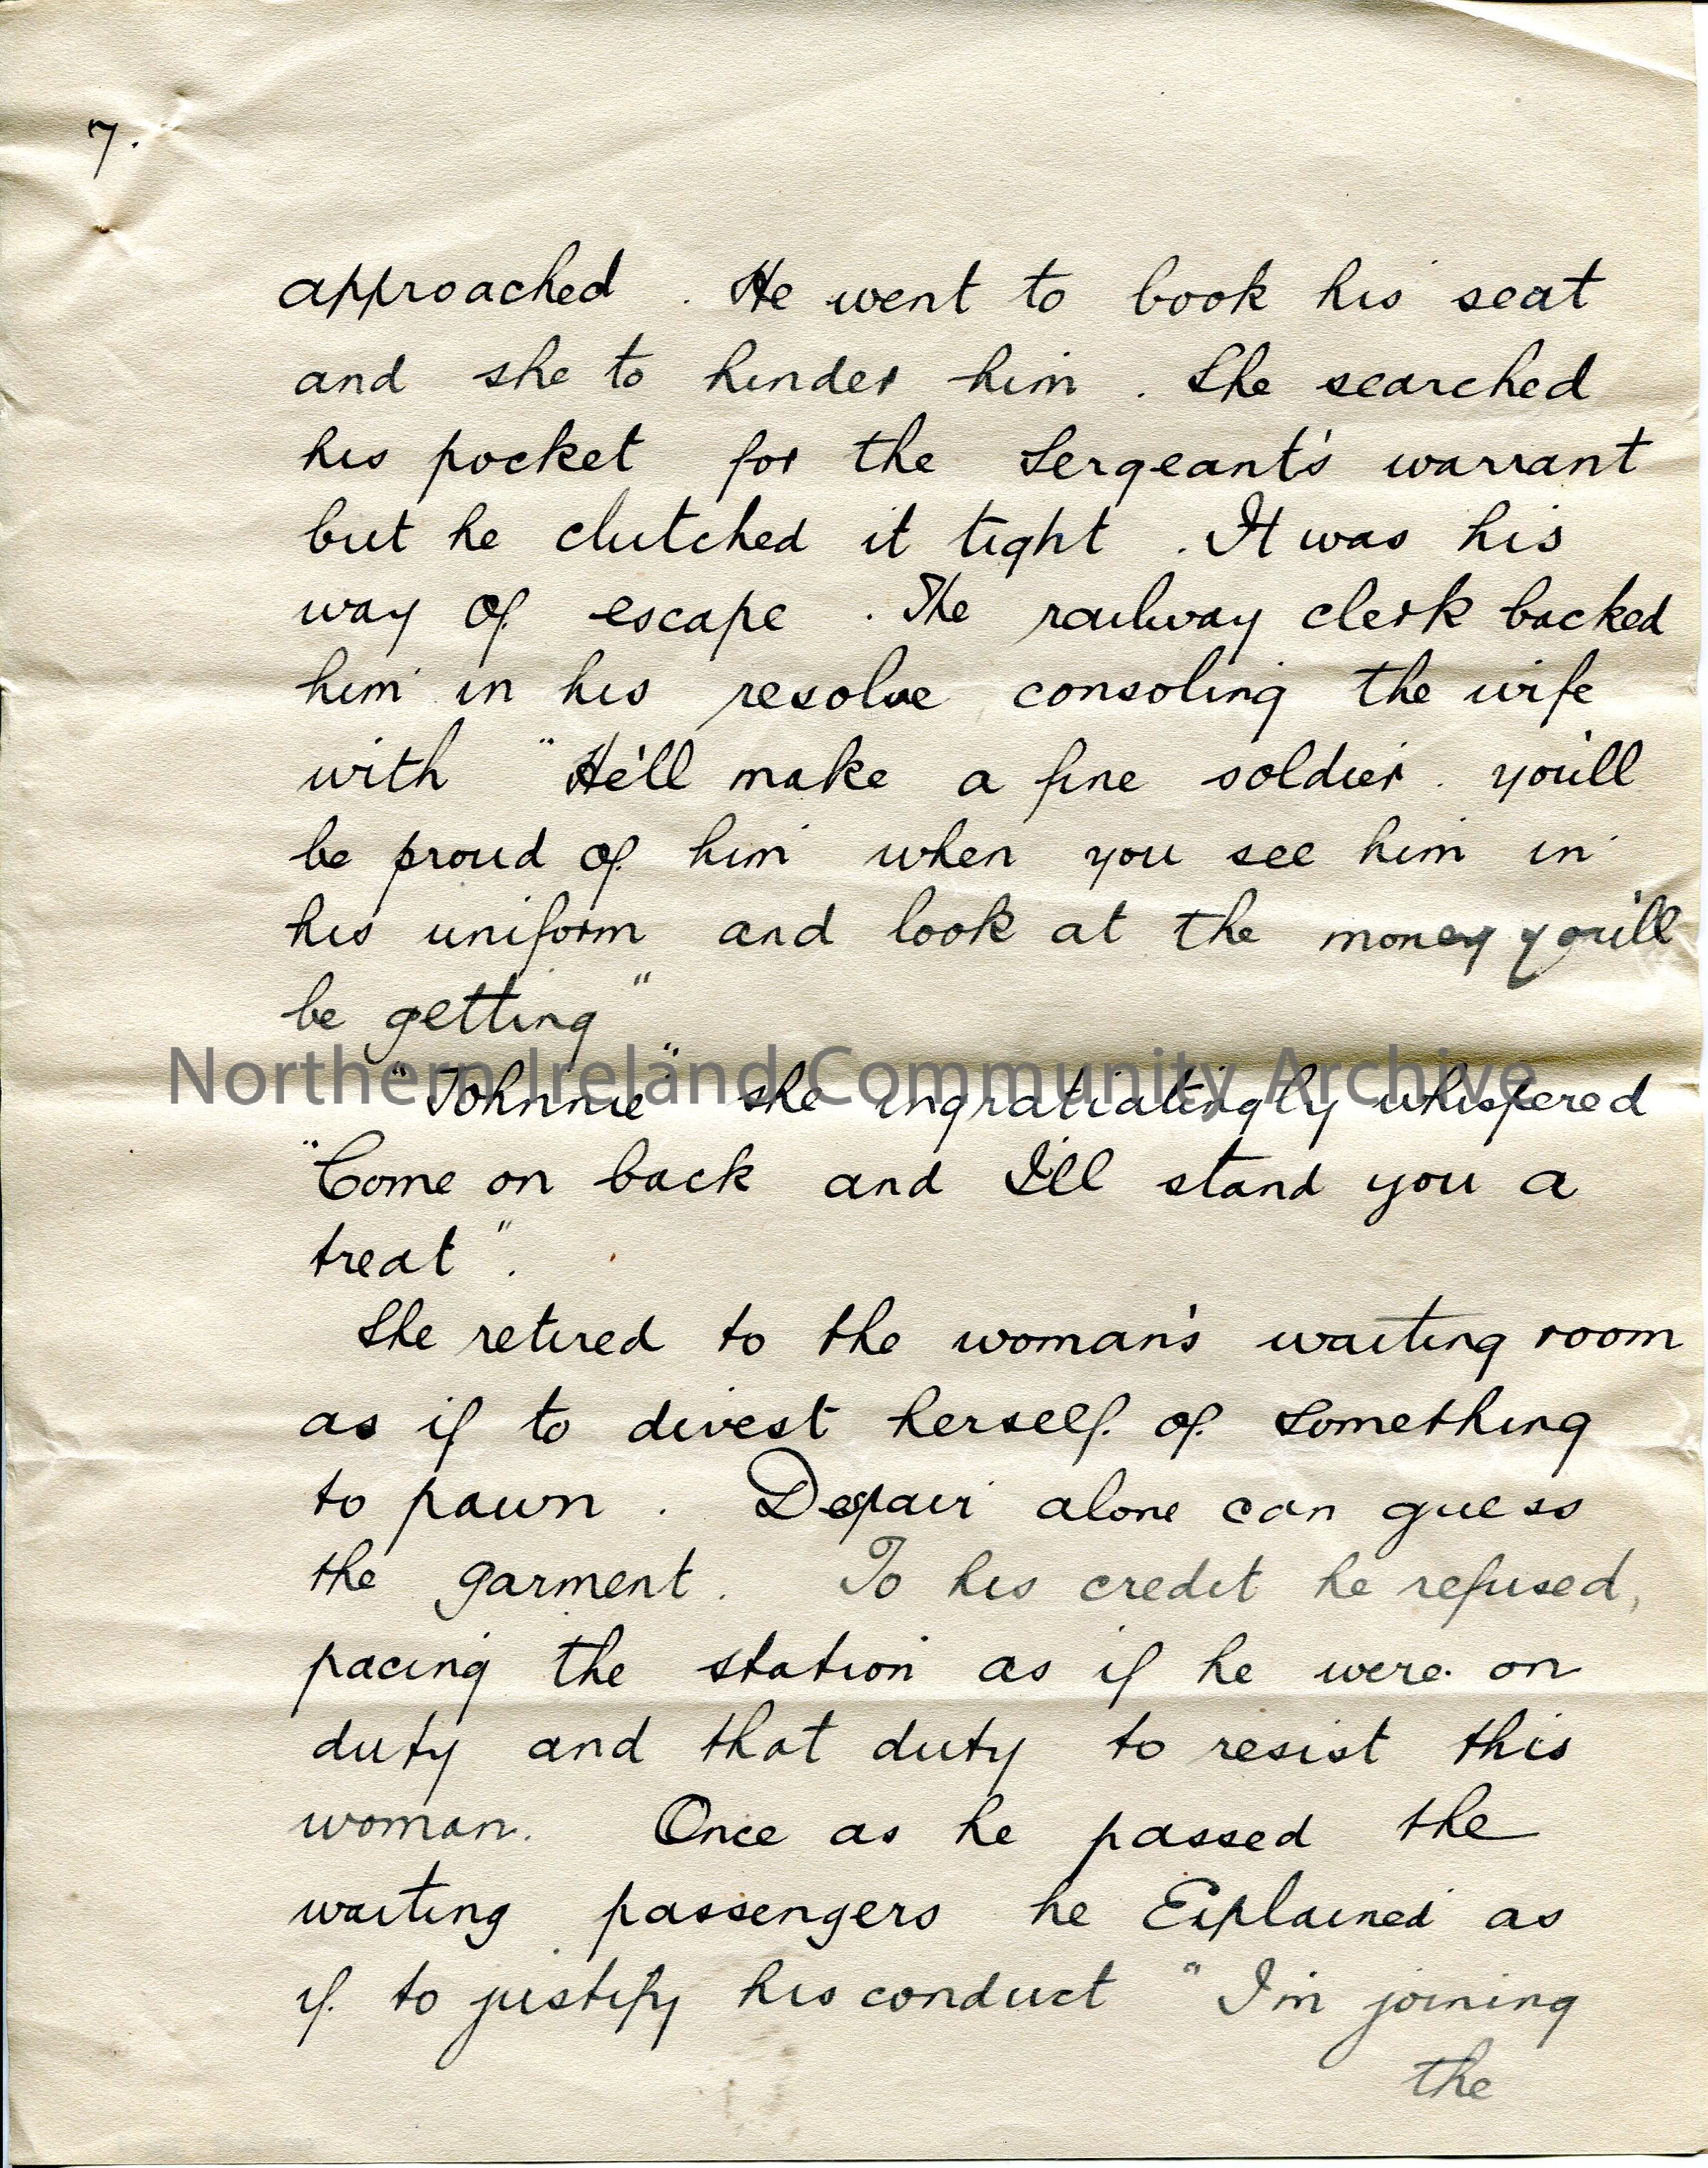 7.
approached . He went to book his seat
and she to hinder him . She searched
his pocket for the Sergeant's warrant
but he clutched it tight . It was his
way of escape . The railway clerk backed
him in his resolve consoling the wife
with "He'll make a fine soldier . you'll
be proud of him when you see him in
his uniform and look at the money you'll
be getting"
Northern Ireland Community Archive
"Johnnie" she ingratiatingly whispered
"Come on back and I'll stand you a
treat".
She retired to the woman's waiting room
as if to divest herself of something
to pawn . Despair alone can guess
the garment . To his credit he refused,
pacing the station as if he were on
duty and that duty to resist this
woman. Once as he passed the
waiting passengers he Explained as
if to justify his conduct "I'm joining
the